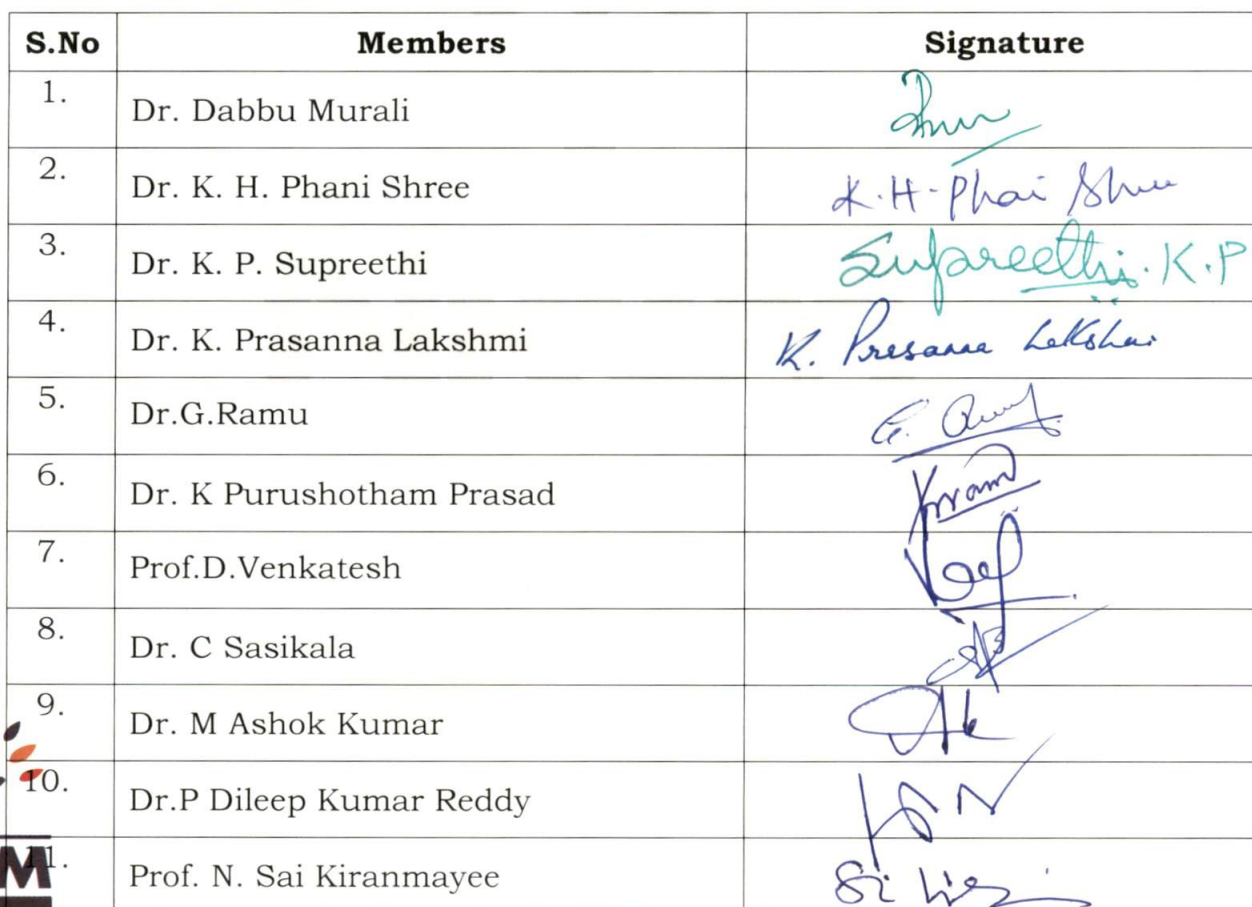 S.No Members Signature
1. Dr. Dabbu Murali
2. Dr. K. H. Phani Shree K.H-Phai Shree
3. Dr. K. P. Supreethi Supareethi.K.P
4. Dr. K. Prasanna Lakshmi K. Presanna Lakshmi
5. Dr.G.Ramu G.
6. Dr. K Purushotham Prasad
7. Prof.D.Venkatesh
8. Dr. C Sasikala
9. Dr. M Ashok Kumar
10. Dr.P Dileep Kumar Reddy
11. Prof. N. Sai Kiranmayee
M